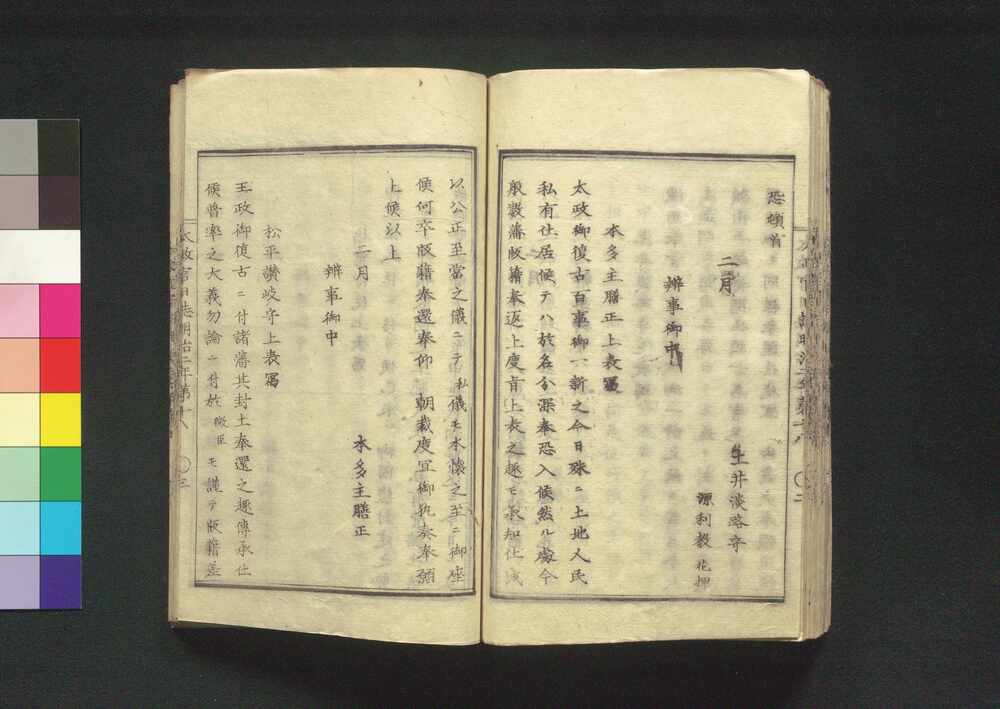 恐頓首
二月
土井淡路守
源利教花押
辨事御中
本多主膳正上表寫
太政御復古百事御一新之今日殊ニ土地人民
私有仕居候テハ於名分深奉恐入候然ル處今
般數藩版籍奉返上度旨上表之趣モ承知仕誠
以公正至當之儀ニテ私儀モ本懷之至ニ御座
候何卒版籍奉還奉仰　朝裁度宜御執奏奉願
上候以上
二月
本多主膳正
辨事御中
松平讃岐守上表寫
王政御復古ニ付諸藩共封土奉還之趣傳承仕
候普率之大義勿論ニ付於微臣モ謹テ版籍差
太政官日誌明治二年第十八
〇三